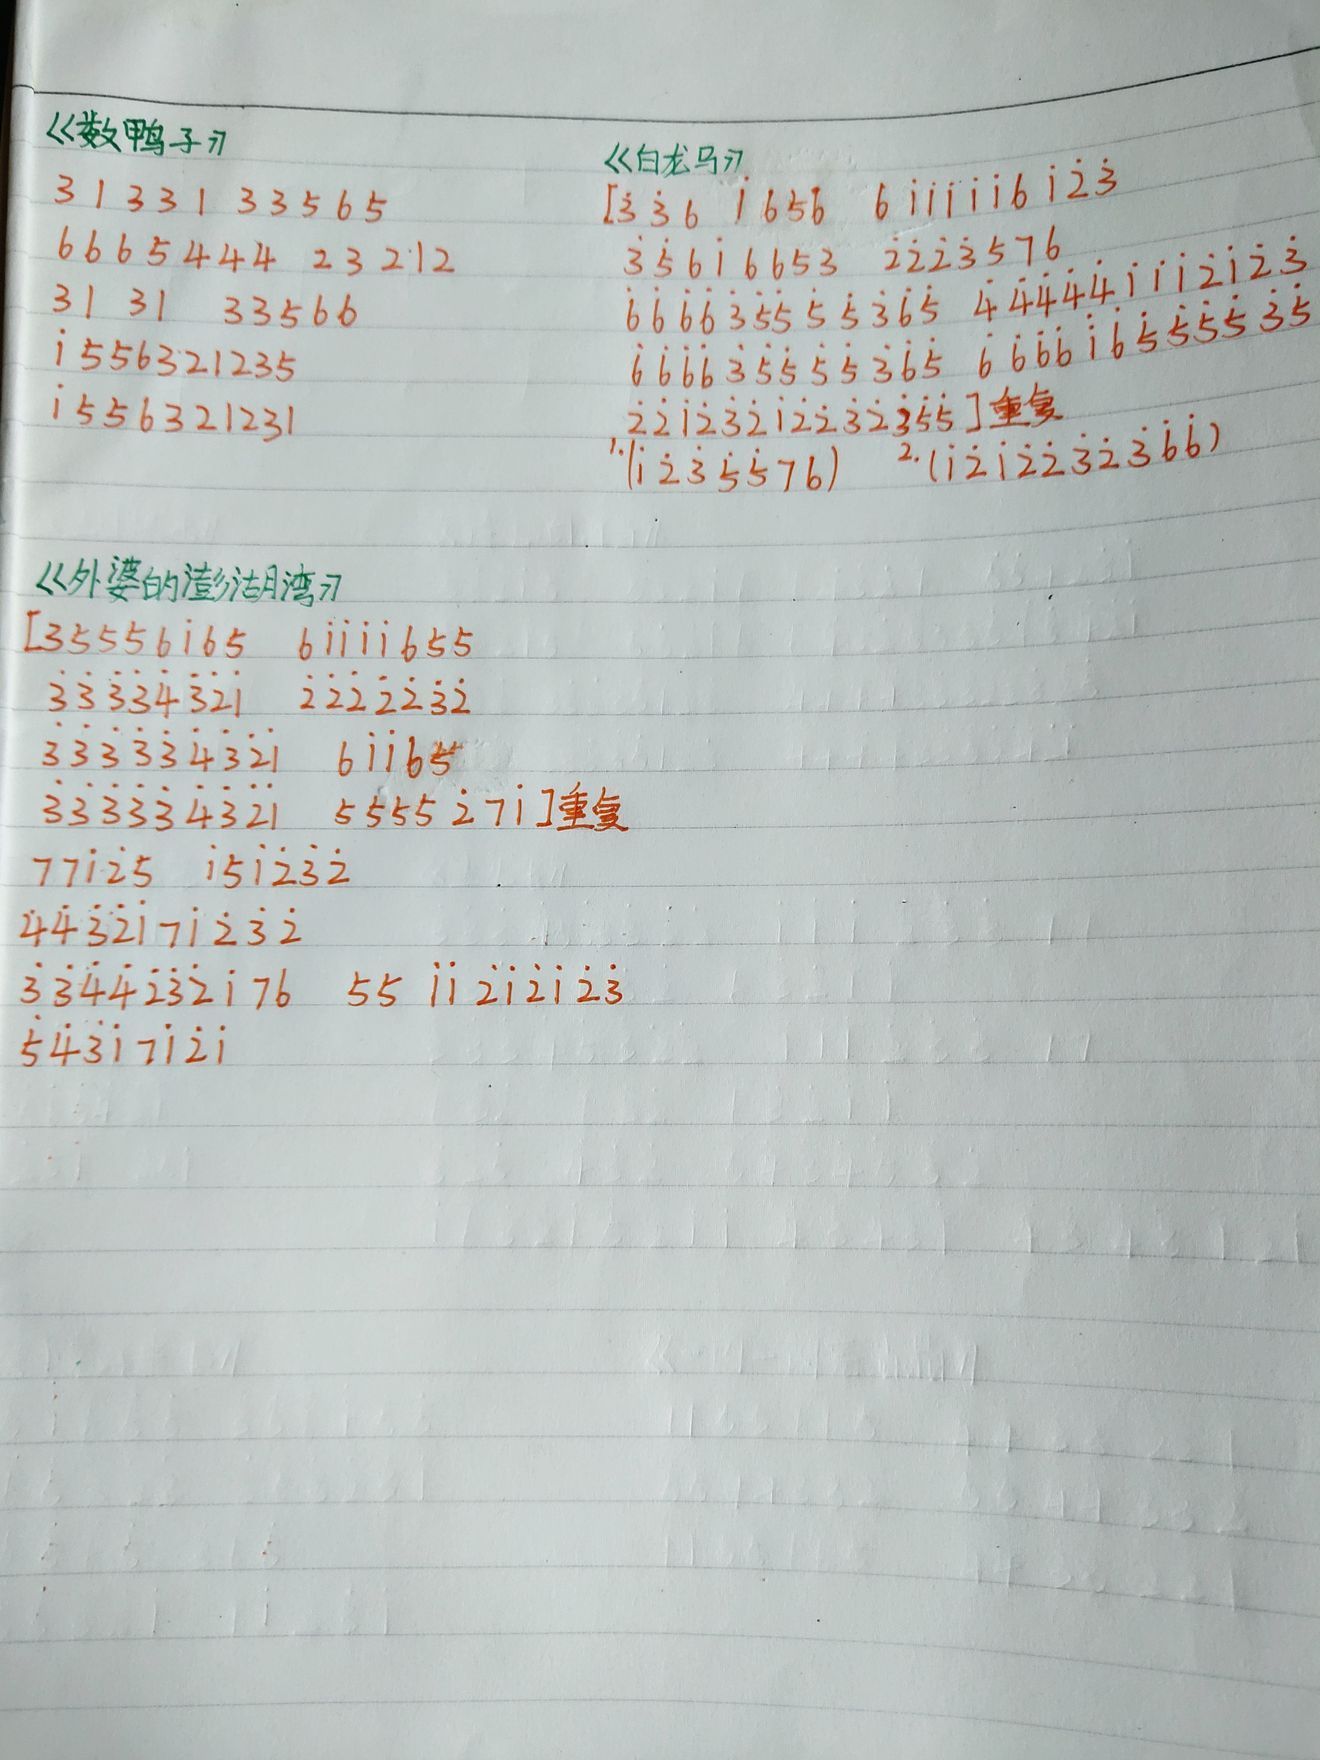 《数鸭子》
3 1 3 3 1 3 3 5 6 5
6 6 6 5 4 4 4 2 3 2 1 2
3 1 3 1 3 3 5 6 6
i̇ 5 5 6 3 2 1 2 3 5
i̇ 5 5 6 3 2 1 2 3 1
《白龙马》
[3̇ 3̇ 6 i̇ 6 5 6 6 i̇ i̇ i̇ i̇ i̇ 6 i̇ 2̇ 3̇
3̇ 5̇ 6 i̇ 6 6 5 3 2̇ 2̇ 2̇ 3̇ 5 7 6
6̇ 6̇ 6̇ 6̇ 3̇ 5̇ 5̇ 5̇ 5̇ 3̇ 6̇ 5̇ 4̇ 4̇ 4̇ 4̇ 4̇ i̇ i̇ i̇ 2̇ i̇ 2̇ 3̇
6̇ 6̇ 6̇ 6̇ 3̇ 5̇ 5̇ 5̇ 5̇ 3̇ 6̇ 5̇ 6̇ 6̇ 6̇ 6̇ i̇ 6̇ 5̇ 5̇ 5̇ 5̇ 3̇ 5̇
2̇ 2̇ i̇ 2̇ 3̇ 2̇ i̇ 2̇ 2̇ 3̇ 2̇ 3̇ 5̇ 5̇ ] 重复
1. (i̇ 2̇ 3̇ 5̇ 5̇ 7 6) 2. (i̇ 2̇ i̇ 2̇ 2̇ 3̇ 2̇ 3̇ 6̇ 6̇)
《外婆的澎湖湾》
[3 5 5 5 6 i̇ 6 5 6 i̇ i̇ i̇ i̇ 6 5 5
3̇ 3̇ 3̇ 3̇ 4̇ 3̇ 2̇ i̇ 2̇ 2̇ 2̇ 2̇ 2̇ 3̇ 2̇
3̇ 3̇ 3̇ 3̇ 3̇ 4̇ 3̇ 2̇ i̇ 6 i̇ i̇ 6 5
3̇ 3̇ 3̇ 3̇ 3̇ 4̇ 3̇ 2̇ i̇ 5 5 5 5 2̇ 7 i̇ ] 重复
7 7 i̇ 2̇ 5 i̇ 5 i̇ 2̇ 3̇ 2̇
4̇ 4̇ 3̇ 2̇ i̇ 7 i̇ 2̇ 3̇ 2̇
3̇ 3̇ 4̇ 4̇ 2̇ 3̇ 2̇ i̇ 7 6 5 5 i̇ i̇ 2̇ i̇ 2̇ i̇ 2̇ 3̇
5̇ 4̇ 3̇ i̇ 7 i̇ 2̇ i̇